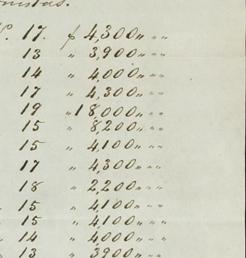 º. 17. $ 4,300 〃 〃 〃
13 〃 3,900 〃 〃 〃
14 〃 4,000 〃 〃 〃
17 〃 4,300 〃 〃 〃
19 〃 18,000 〃 〃 〃
15 〃 8,200 〃 〃 〃
15 〃 4,100 〃 〃 〃
17 〃 4,300 〃 〃 〃
18 〃 2,200 〃 〃 〃
15 〃 4100 〃 〃 〃
15 〃 4100 〃 〃 〃
14 〃 4000 〃 〃 〃
13 〃 3900 〃 〃 〃